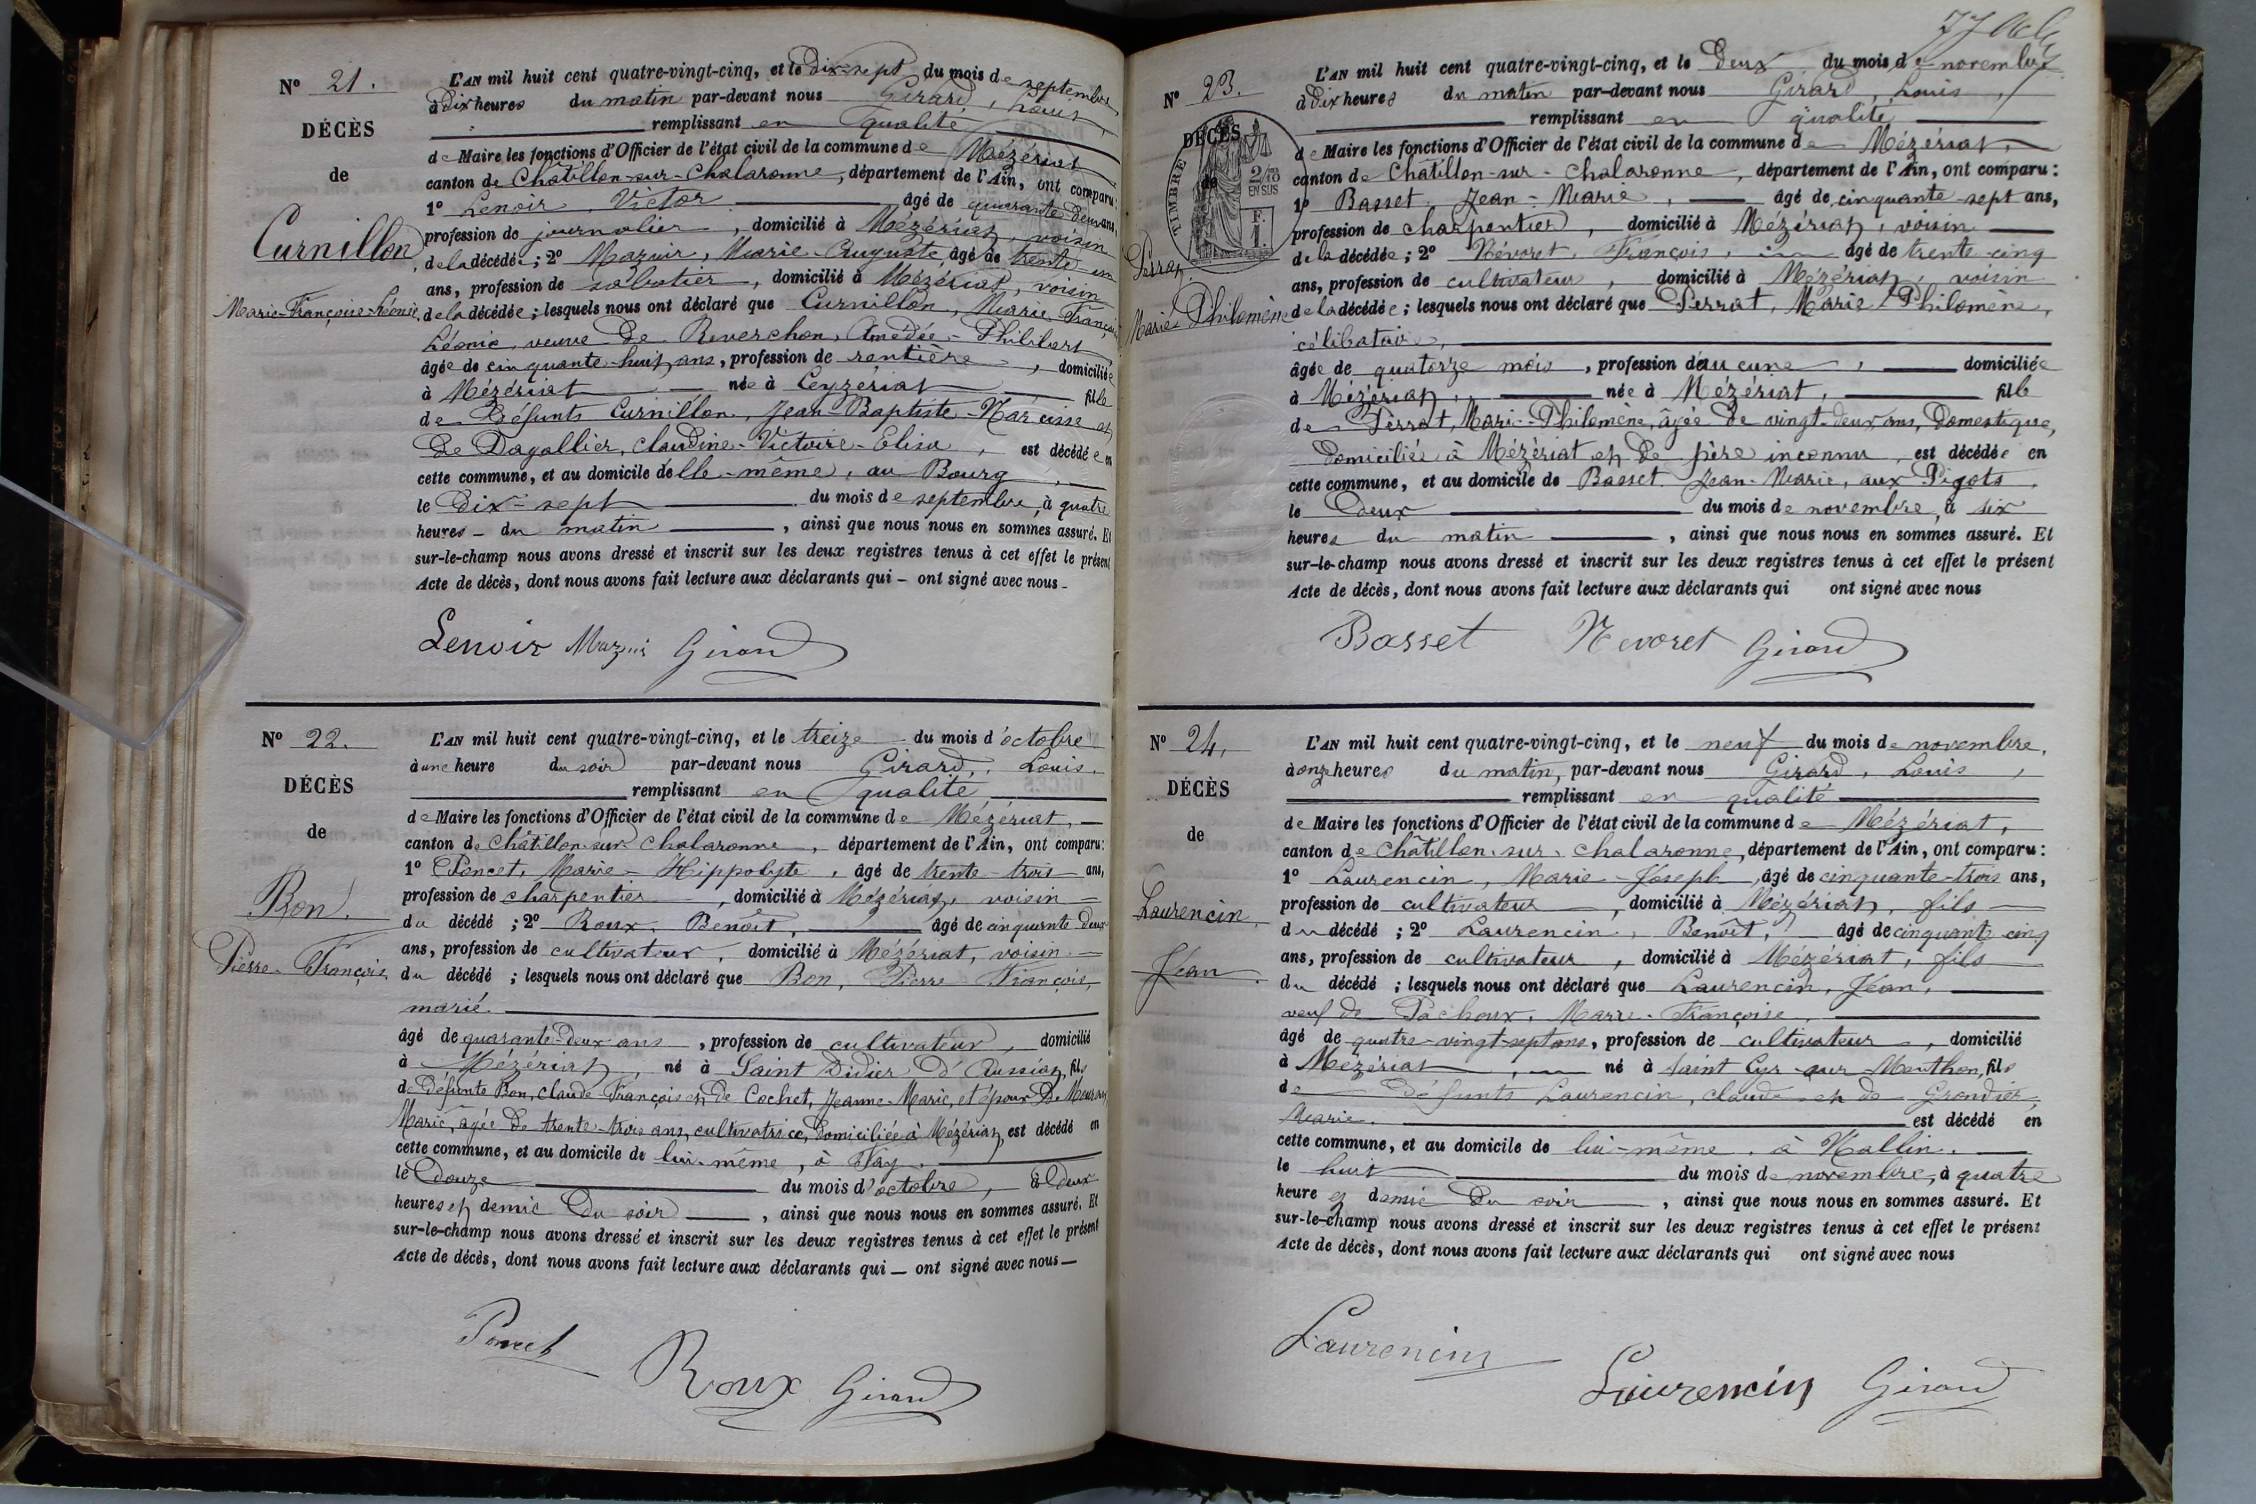 Nº 21.
DÉCÈS
de
Curnillon
Marie-Françoise-Léonie.
L'AN mil huit cent quatre-vingt-cinq, et le dix-sept du mois de septembre
à dix heures du matin par-devant nous Girard, Louis,
remplissant en qualité
de Maire les fonctions d'Officier de l'état civil de la commune de Mézériat
canton de Châtillon-sur-Chalaronne, département de l'Ain, ont comparu:
1º Lenoir, Victor âgé de quarante-deux ans,
profession de journalier, domicilié à Mézériat, voisin
de la décédée; 2º Mazuir, Marie-Auguste, âgé de trente-un
ans, profession de sabotier, domicilié à Mézériat, voisin
de la décédée; lesquels nous ont déclaré que Curnillon, Marie Françoise
Léonie, veuve de Reverchon, Amédée-Philibert
âgée de cinquante-huit ans, profession de rentière, domiciliée
à Mézériat née à Ceyzériat fille
de Défunts Curnillon, Jean Baptiste-Narcisse et
de Dagallier, Claudine-Victoire-Elisa, est décédée en
cette commune, et au domicile d'elle-même, au Bourg,
le dix-sept du mois de septembre, à quatre
heures du matin, ainsi que nous nous en sommes assuré. Et
sur-le-champ nous avons dressé et inscrit sur les deux registres tenus à cet effet le présent
Acte de décès, dont nous avons fait lecture aux déclarants qui — ont signé avec nous
Lenoir Mazuir Girard
Nº 22.
DÉCÈS
de
Bon
Pierre-François
L'AN mil huit cent quatre-vingt-cinq, et le treize du mois d'octobre
à une heure du soir par-devant nous Girard, Louis,
remplissant en qualité
de Maire les fonctions d'Officier de l'état civil de la commune de Mézériat,
canton de Châtillon sur Chalaronne, département de l'Ain, ont comparu:
1º Poncet, Marie-Hippolyte, âgé de trente-trois ans,
profession de charpentier, domicilié à Mézériat, voisin
du décédé; 2º Roux, Benoît, âgé de cinquante deux
ans, profession de cultivateur, domicilié à Mézériat, voisin
du décédé; lesquels nous ont déclaré que Bon, Pierre François,
marié
âgé de quarante-deux ans, profession de cultivateur, domicilié
à Mézériat, né à Saint Didier d'Aussiat, fils
de Défunts Bon, Claude François et de Cochet, Jeanne-Marie, et époux de
Marie, âgée de trente-trois ans, cultivatrice, domiciliée à Mézériat, est décédé en
cette commune, et au domicile de lui-même, à Fay,
le Douze du mois d'octobre, à deux
heures et demie du soir, ainsi que nous nous en sommes assuré. Et
sur-le-champ nous avons dressé et inscrit sur les deux registres tenus à cet effet le présent
Acte de décès, dont nous avons fait lecture aux déclarants qui — ont signé avec nous —
Poncet Roux Girard
Nº 23.
DÉCÈS
de
TIMBRE
2/10
EN SUS
F.
1.
Perrat
Marie Philomène
L'AN mil huit cent quatre-vingt-cinq, et le Deux du mois de novembre
à dix heures du matin par-devant nous Girard, Louis,
remplissant en qualité
de Maire les fonctions d'Officier de l'état civil de la commune de Mézériat,
canton de Châtillon-sur-Chalaronne, département de l'Ain, ont comparu:
1º Basset, Jean-Marie, âgé de cinquante-sept ans,
profession de charpentier, domicilié à Mézériat, voisin
de la décédée; 2º Névoret, François, âgé de trente-cinq
ans, profession de cultivateur, domicilié à Mézériat, voisin
de la décédée; lesquels nous ont déclaré que Perrat, Marie Philomène,
célibataire,
âgée de quatorze mois, profession d'aucune, domiciliée
à Mézériat, née à Mézériat, fille
de Perrat, Marie-Philomène, âgée de vingt-deux ans, Domestique,
Domiciliée à Mézériat et de père inconnu, est décédée en
cette commune, et au domicile de Basset, Jean-Marie, aux Pigots,
le Deux du mois de novembre, à six
heures du matin, ainsi que nous nous en sommes assuré. Et
sur-le-champ nous avons dressé et inscrit sur les deux registres tenus à cet effet le présent
Acte de décès, dont nous avons fait lecture aux déclarants qui ont signé avec nous
Basset Nevoret Girard
Nº 24,
DÉCÈS
de
Laurencin
Jean
L'AN mil huit cent quatre-vingt-cinq, et le neuf du mois de novembre,
à onze heures du matin, par-devant nous Girard, Louis,
remplissant en qualité
de Maire les fonctions d'Officier de l'état civil de la commune de Mézériat,
canton de Châtillon-sur-Chalaronne, département de l'Ain, ont comparu:
1º Laurencin, Marie-Joseph, âgé de cinquante-trois ans,
profession de cultivateur, domicilié à Mézériat, fils
du décédé; 2º Laurencin, Benoît, âgé de cinquante cinq
ans, profession de cultivateur, domicilié à Mézériat, fils
du décédé; lesquels nous ont déclaré que Laurencin, Jean,
veuf de Pachoux, Marie-Françoise,
âgé de quatre-vingt-sept ans, profession de cultivateur, domicilié
à Mézériat, né à Saint Cyr sur Menthon, fils
de défunts Laurencin, Claude et de Grondier,
Marie. est décédé en
cette commune, et au domicile de lui-même, à Nallin,
le huit du mois de novembre, à quatre
heure et demie du soir, ainsi que nous nous en sommes assuré. Et
sur-le-champ nous avons dressé et inscrit sur les deux registres tenus à cet effet le présent
Acte de décès, dont nous avons fait lecture aux déclarants qui ont signé avec nous
Laurencin Laurencin Girard